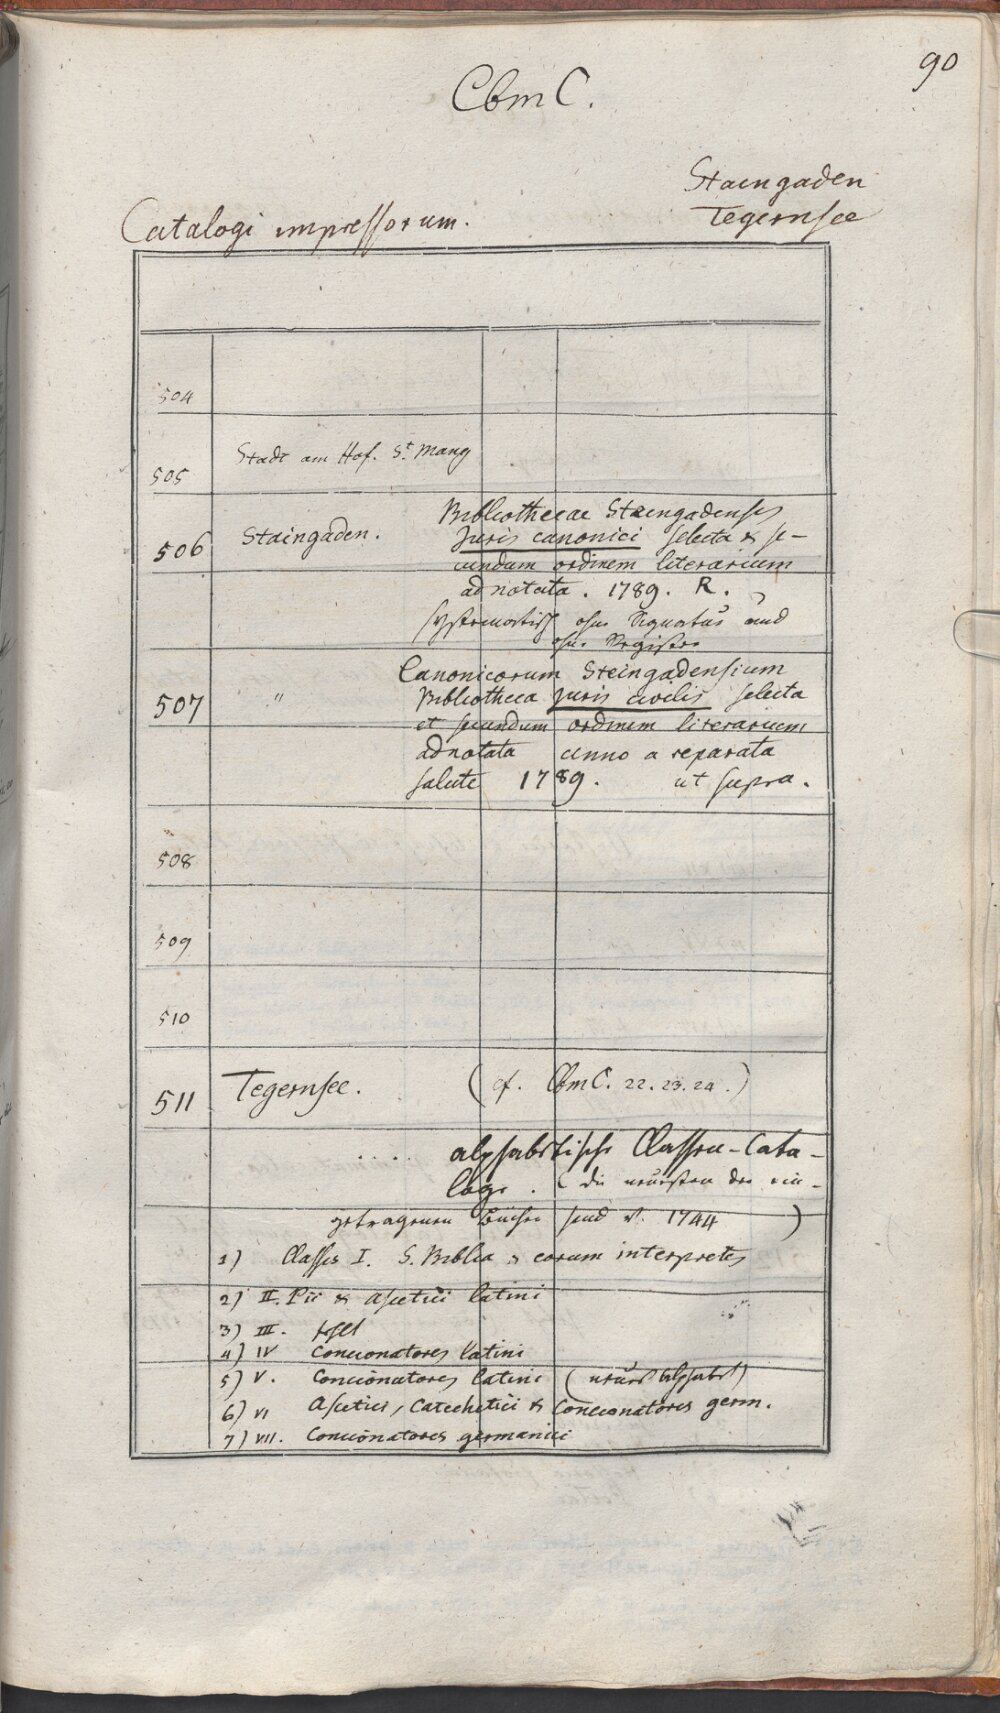 90
CbmC.
Staingaden
Tegernsee
Catalogi impressorum.
504
505 Stadt am Hof. St. Mang
506 Staingaden. Bibliothecae Staingadensis
Juris canonici selecta & se-
cundum ordinem literarium
adnotata. 1789. R.
systematisch ohne Signatur und
ohne Register
507 " Canonicorum Steingadensium
Bibliotheca Juris civilis selecta
et secundum ordinem literarium
adnotata anno a reparata
salute 1789. ut supra.
508
509
510
511 Tegernsee. (cf. CbmC. 22. 23. 24.)
. . . . alphabetische Classen-Cata-
loge. (die neuesten der ein-
getragenen Bücher sind v. 1744)
1) Classis I. S. Biblia & eorum interpretes
2) II. Pii & ascetici latini
3) III. fehlt
4) IV Concionatores latini
5) V. Concionatores latini (neues Alphabet)
6) VI Ascetici, Catechetici & Concionatores germ.
7) VII. Concionatores germanici